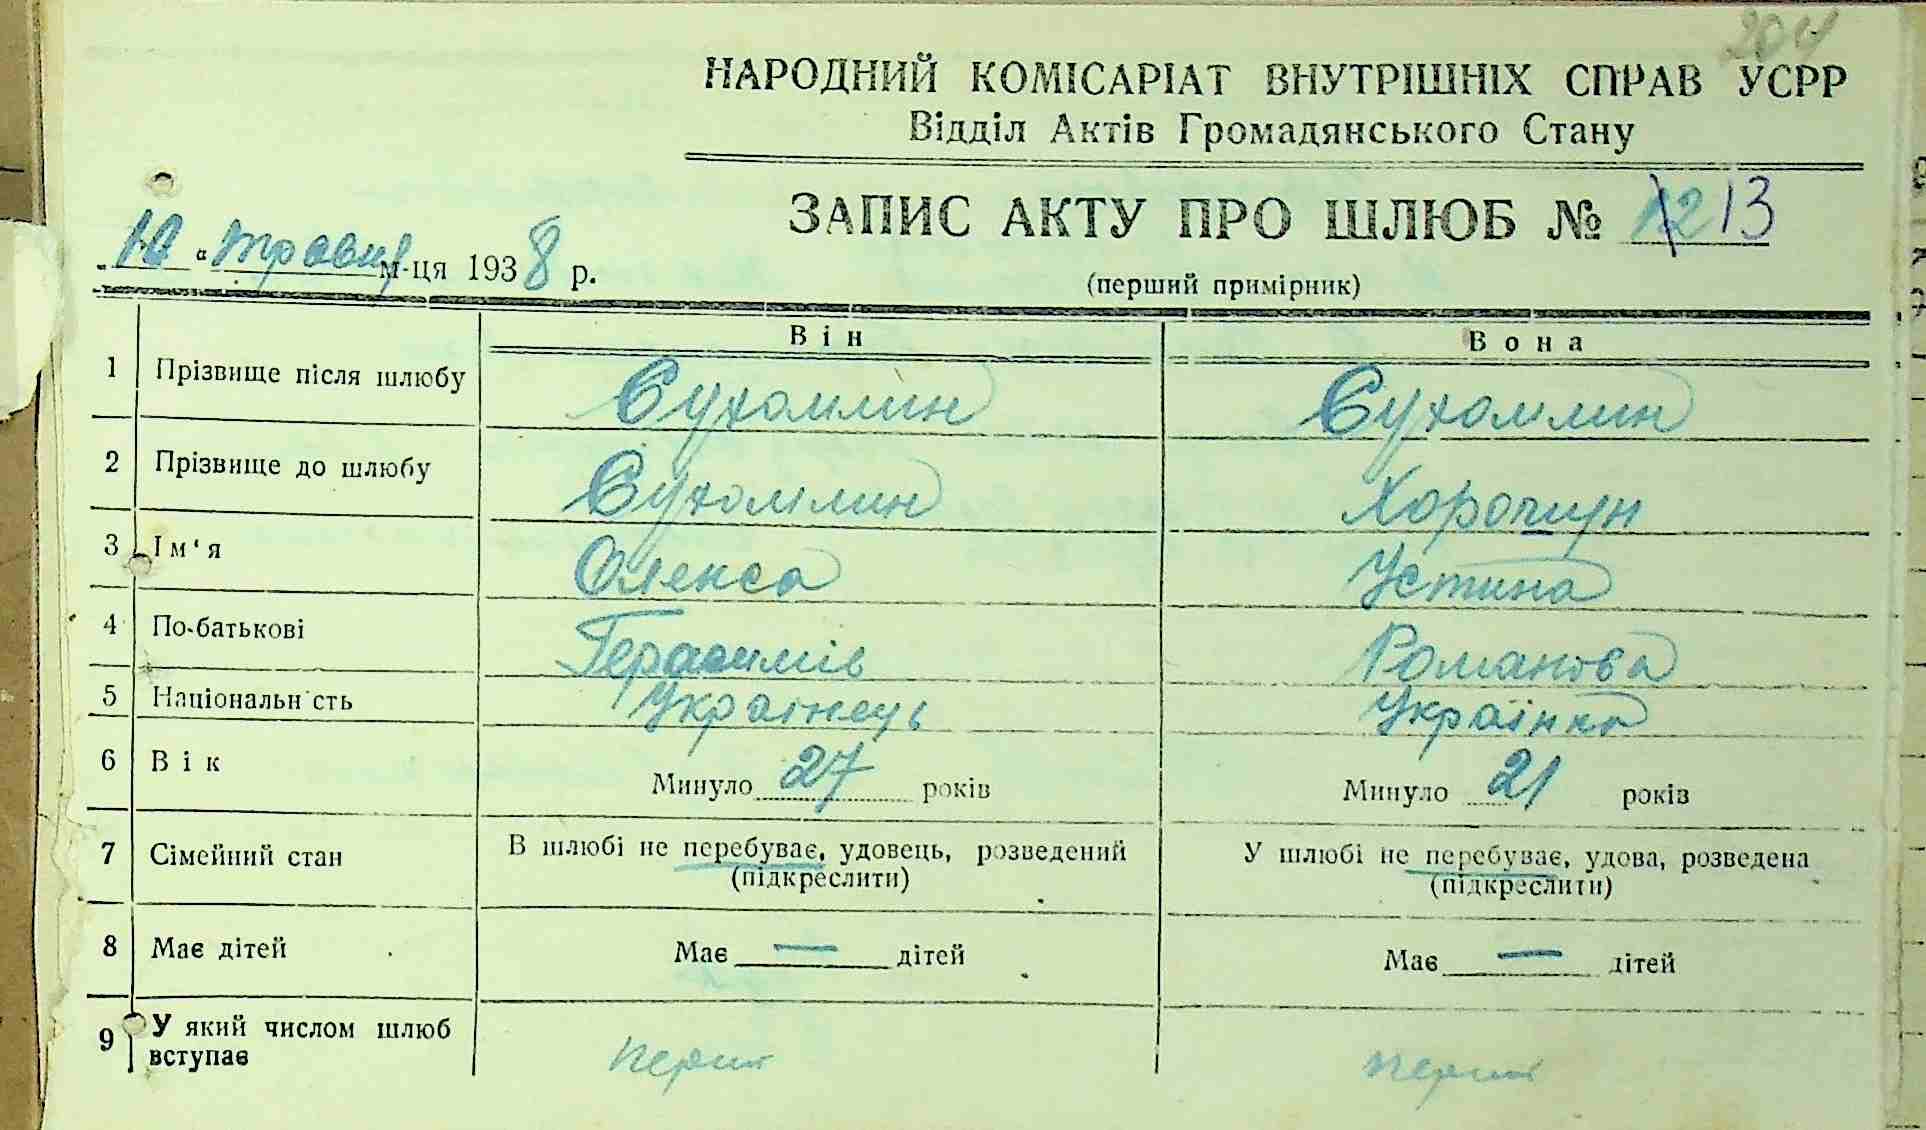 204
НАРОДНИЙ КОМІСАРІАТ ВНУТРІШНІХ СПРАВ УСРР
Відділ Актів Громадянського Стану
ЗАПИС АКТУ ПРО ШЛЮБ № 12 13
„10 “ травня м-ця 1938 р.
(перший примірник)
Він Вона
1 Прізвище після шлюбу Сухомлин Сухомлин
2 Прізвище до шлюбу Сухомлин
3 Ім‘я Олекса Устина
4 По-батькові Герасимів Романова
5 Національність Українець Українка
6 Вік Минуло 27 років Минуло 21 років
7 Сімейний стан В шлюбі не перебуває, удовець, розведений У шлюбі не перебуває, удова, розведена
(підкреслити) (підкреслити)
8 Має дітей Має — дітей Має — дітей
9 У який числом шлюб
вступає перший перший